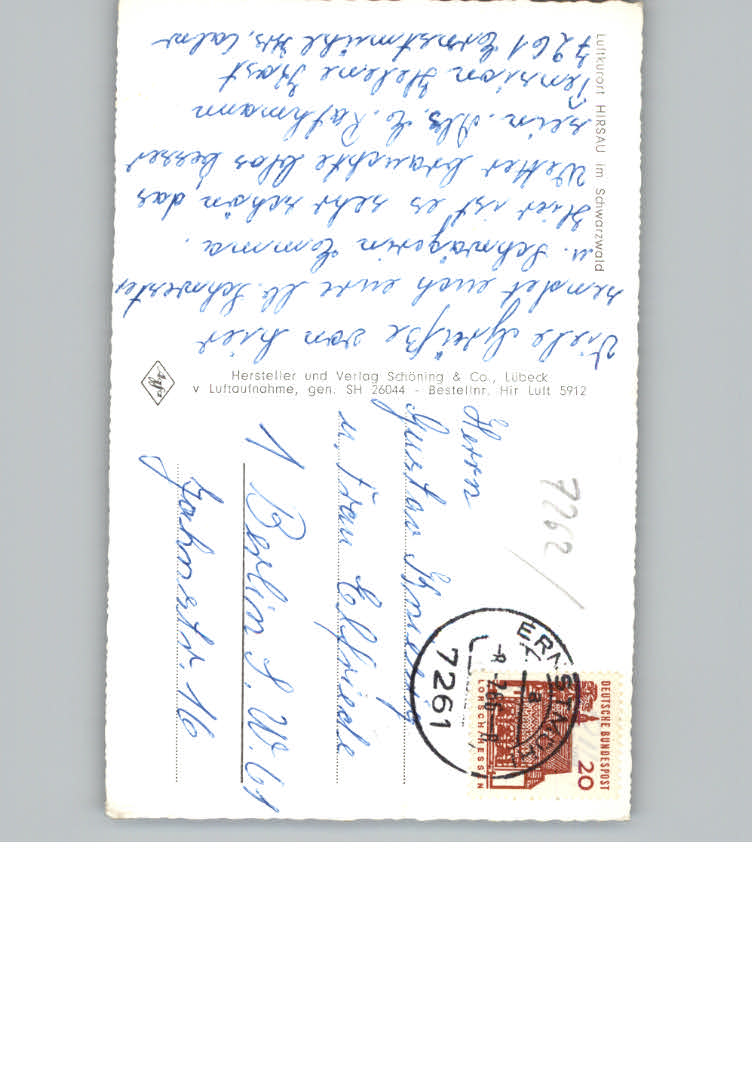 Luftkurort HIRSAU im Schwarzwald
Viele Grüße von hier
sendet euch eure lb. Schwester
u. Schwägerin Emma.
Hier ist es sehr schön das
Wetter brauchte blos besser
sein. Abs. E. Rathmann
Pension Helene Hast
7261 Ernstmühl Krs. Calw
Hersteller und Verlag Schöning & Co., Lübeck
v Luftaufnahme, gen. SH 26044 - Bestellnr. Hir Luft 5912
Agfa
7262/
DEUTSCHE BUNDESPOST
20
LORSCH/HESSEN
ERNSTMÜHL
7261
Herrn
Gustav
u. Frau Elfriede
1 Berlin S.W. 61
Jahnstr. 16